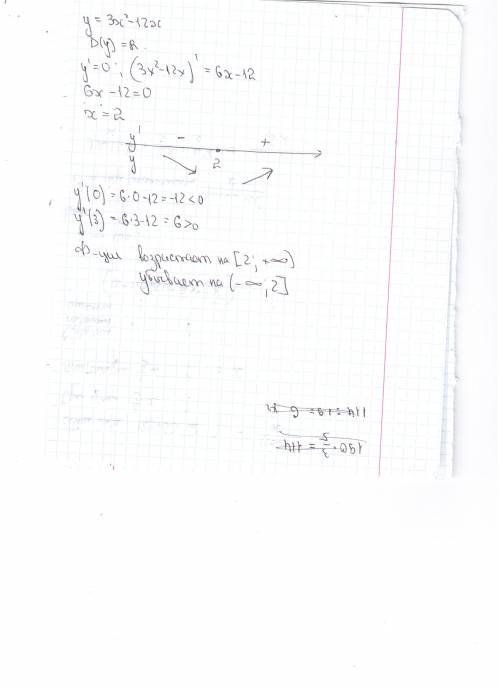 y = 3x²-12x
D(y) = R.
y'=0; (3x²-12x)' = 6x-12
6x-12=0
x=2
y' - +
y 2
y'(0) = 6·0-12=-12<0
y'(3) = 6·3-12=6>0
Ф-ция возрастает на [2; +∞)
убывает на (-∞; 2]
190·3/5=114